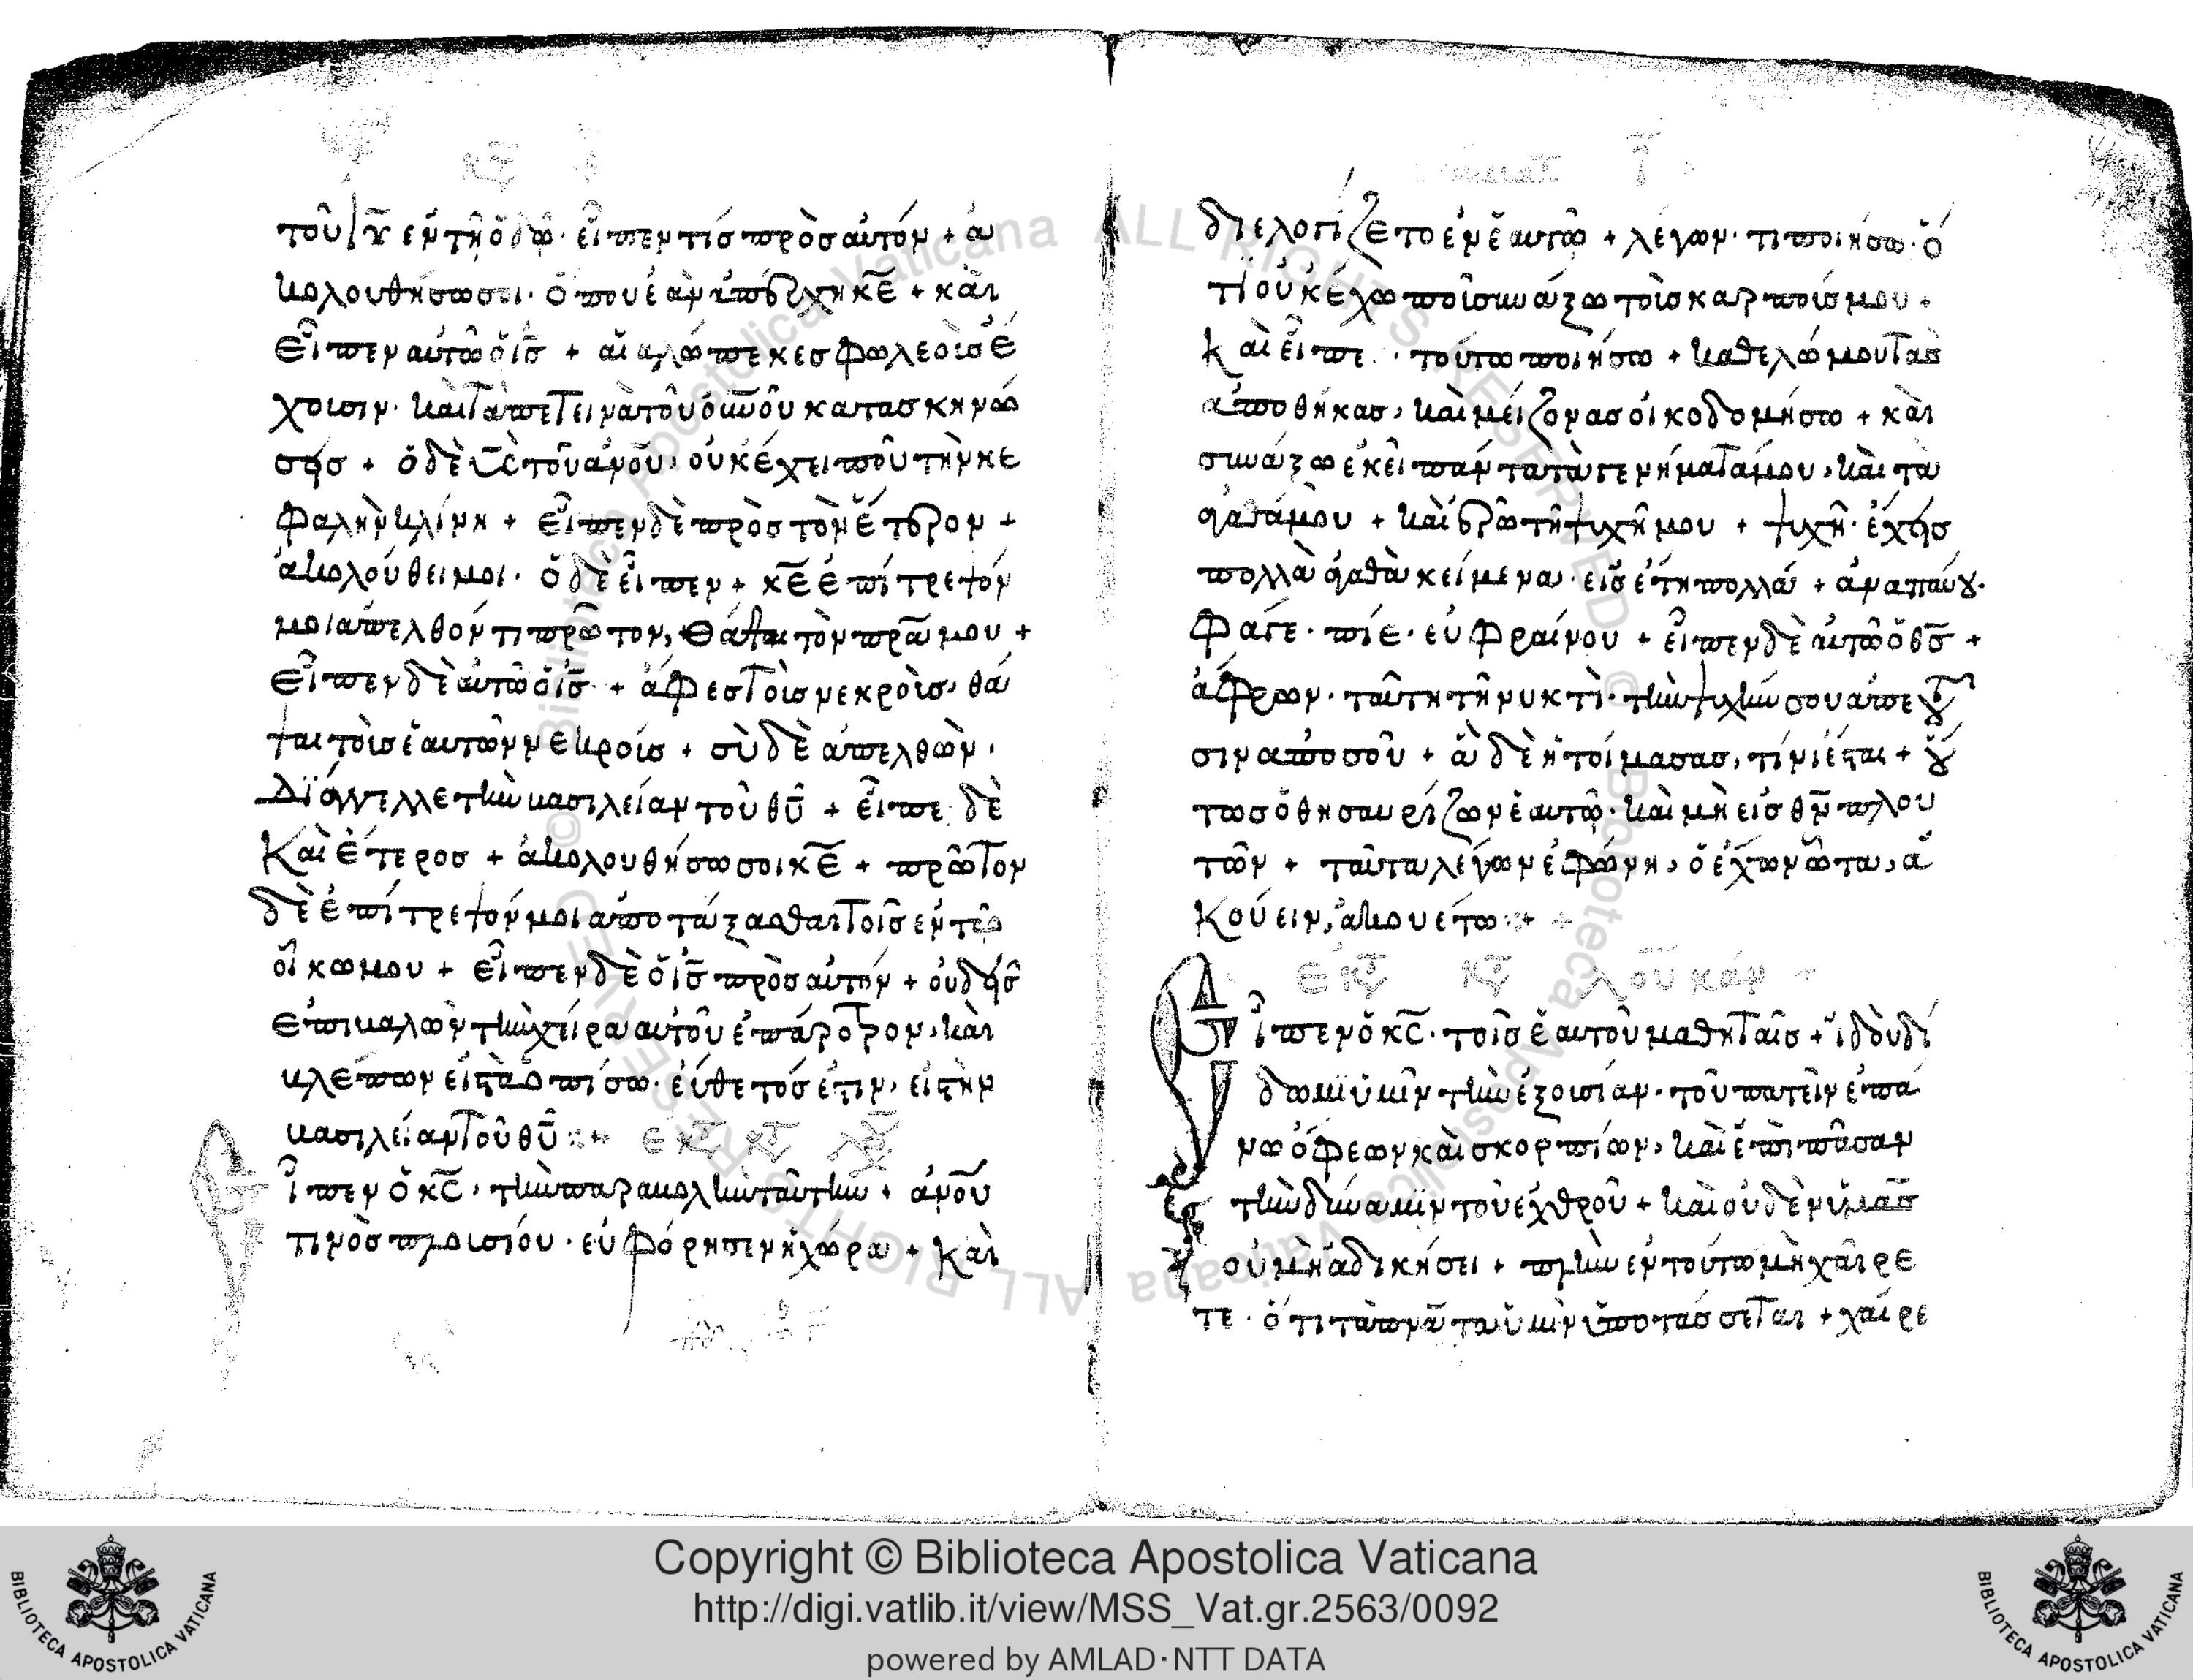 τοῦ ιῦ ἐν τῇ ὁδῷ· εἶπέν τις πρὸς αὐτόν + ἀ
κολουθήσω σοι· ὅπου ἐὰν ἀπέρχη κε + καὶ
εἶπεν αὐτῷ ὁ ις + αἱ αλώπεκες φωλεοὶς ἔ
χουσιν· καὶ τὰ πετεινὰ τοῦ οὐνοῦ κατασκηνώ
σης + ὁ δὲ υς τοῦ ανου, οὐκ έχει ποῦ τὴν κε
φαλὴν κλίνη + εἶπεν δὲ πρὸς τὸν ἕτερον +
ἀκολούθει μοι· ὁ δὲ εἶπεν + κε ἐπίτρεψόν
μοι ἀπελθόντι πρῶτον, θάψαι τὸν πρα μου +
εἶπεν δὲ αὐτῷ ὁ ις + ἄφες τοὶς νεκροὶς, θά
ψαι τοὶς ἑαυτῶν νεκροίς + σὺ δὲ ἀπελθὼν·
διάγγελλε τὴν βασιλείαν τοῦ θυ + εἶπε δὲ
καὶ ἕτερος + ἀκολουθήσω σοι κε + πρῶτον
δὲ ἐπίτρεψόν μοι ἀποτάξασθαι τοῖς ἐν τῷ
οἴκω μου + εἶπεν δὲ ὁ ις πρὸς αὐτόν + οὐδεὶς
ἐπιβαλὼν τὴν χείρα αὐτοῦ ἐπ' ἄροτρον, καὶ
βλέπων εἰς τὰ ὀπίσω· εὔθετός ἐστιν, εἰς τὴν
βασιλείαν τοῦ θυ : + ἐκ τ κτ λου
ἶπεν ὁ κς, τὴν παραβολὴν ταύτην + ἀνου
τινὸς πλουσίου· εὐφόρησεν ἡ χώρα + καὶ
διελογίζετο ἐν ἑαυτῷ + λέγων· τί ποιήσω· ὅ
τι οὐκ έχω ποῖ συνάξω τοὶς καρποίς μου +
καὶ εἶπε· τούτω ποιήσω + καθελῶ μου τὰς
ἀποθήκας, καὶ μείζονας οἰκοδομήσω + καὶ
συνάξω ἐκεῖ πάντα τὰ γενήματά μου, καὶ τὰ
ἀγαθά μου + καὶ ἐρῶ τῇ ψυχῇ μου + ψυχῆ· ἔχεις
πολλὰ ἀγαθὰ κείμενα· εἰς ἔτη πολλά + ἀναπαύου·
φάγε· πίε· εὐφραίνου + εἶπεν δὲ αὐτῷ ὁ θς +
ἄφρων· ταύτη τῇ νυκτὶ· τὴν ψυχήν σου ἀπετοῦ
σιν ἀπὸ σοῦ + ἃ δὲ ἡτοίμασας, τίνι έσται + οὕ
τως ὁ θησαυρίζων ἑαυτῷ· καὶ μὴ εἰς θν πλου
τῶν + ταῦτα λέγων ἐφώνη, ὁ έχων ὦτα, ἀ
κούειν, ἀκουέτω : + +
ἐκ τ κτ λουκάν +
Εἶπεν ὁ κς· τοῖς ἑαυτοῦ μαθηταῖς + ἰδοὺ δί
δωμι ὑμῖν τὴν ἐξουσίαν· τοῦ πατεῖν ἐπά
νω ὄφεων καὶ σκορπίων, καὶ ἐπὶ πᾶσαν
τὴν δύναμιν τοῦ ἐχθροῦ + καὶ οὐδὲν ὑμᾶς
οὐ μὴ ἀδικήσει + πλὴν ἐν τούτω μὴ χαίρε
τε· ὅτι τὰ πνατα ὑμὶν ὑποτάσσεται + χαίρε
Copyright © Biblioteca Apostolica Vaticana
http://digi.vatlib.it/view/MSS_Vat.gr.2563/0092
powered by AMLAD·NTT DATA
BIBLIOTECA APOSTOLICA VATICANA
BIBLIOTECA APOSTOLICA VATICANA